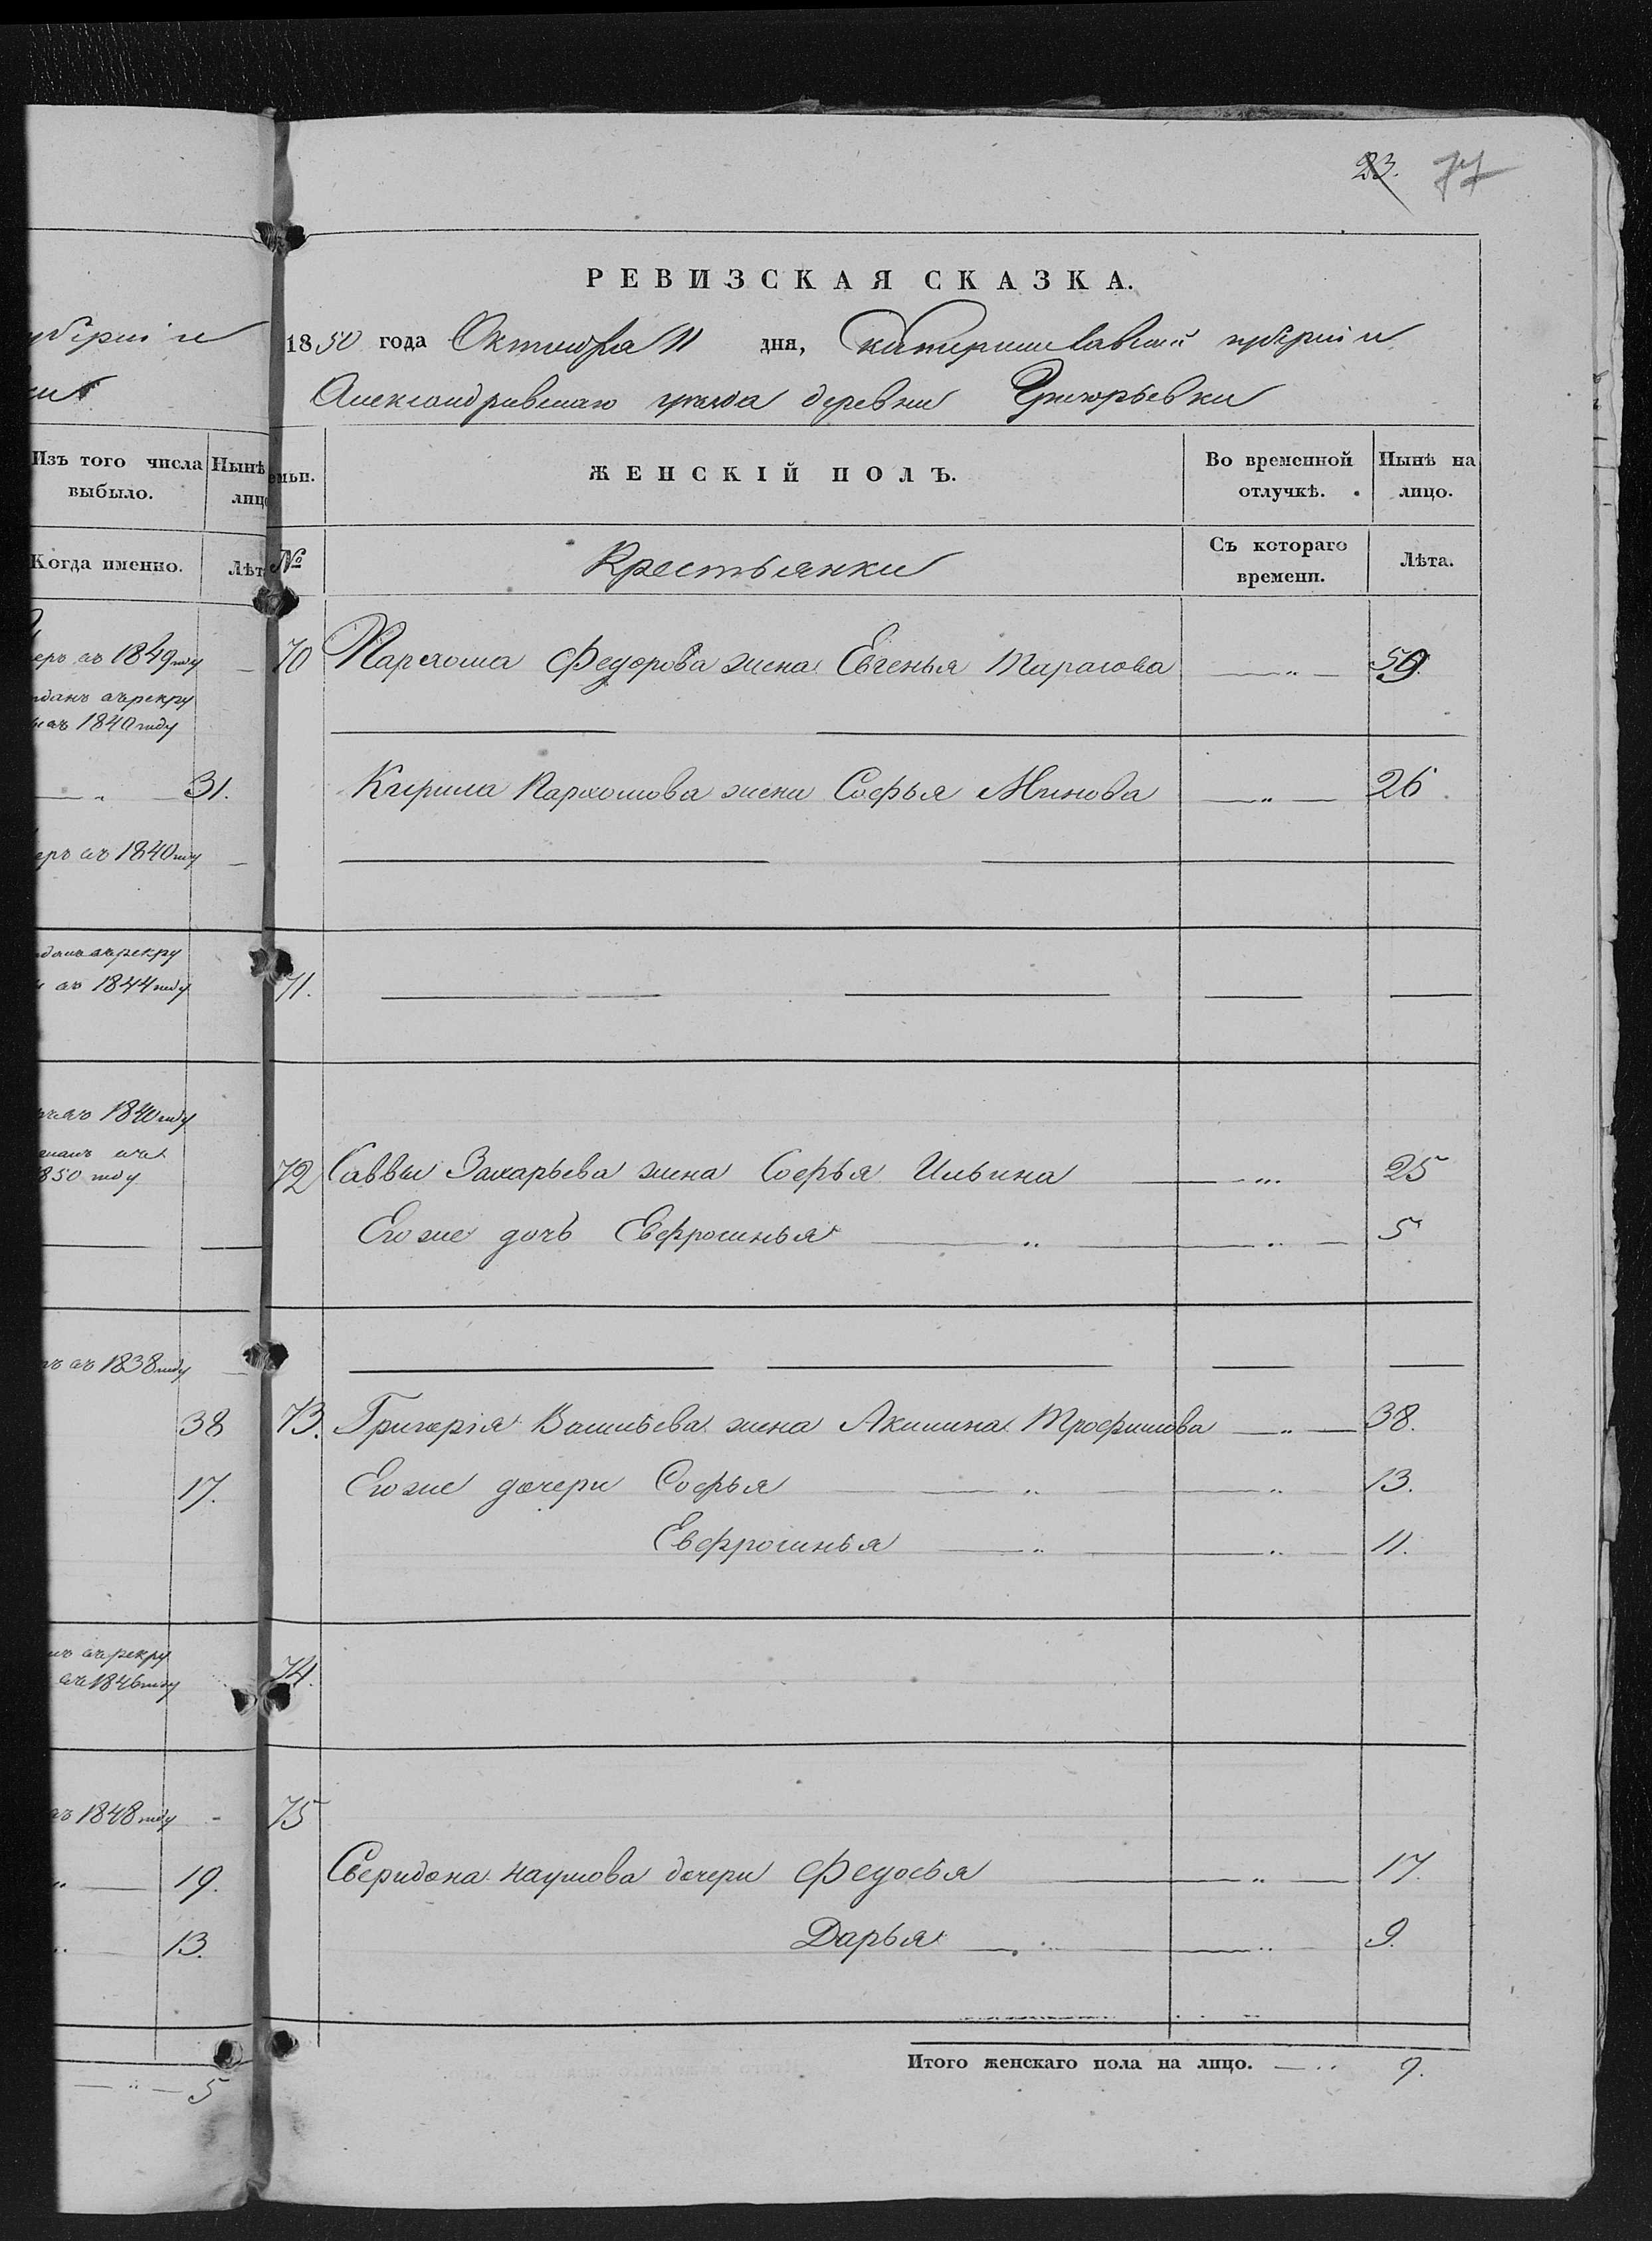 23. 77
РЕВИЗСКАЯ СКАЗКА.
1850 года Октября 11 дня, Екатеринославской губернiи
Александровскаго уезда деревни Григорьевки
губернiи
Изъ того числа выбыло.
Нынѣ лицо
Когда именно.
Лѣт
емьи.
ЖЕНСКIЙ ПОЛЪ.
Во временной отлучкѣ.
Нынѣ на лицо.
№
Крестьянки
Съ котораго времени.
Лѣта.
меръ въ 1849 году
отданъ въ рекру
въ 1840 году
— „ — 31.
меръ въ 1840 году
отданъ въ рекру
въ 1844 году
въ 1840 году
1850 году
въ 1838 году
38
17.
въ рекру
въ 1846 году
въ 1848 году
„ — 19.
„ — 13.
— „ — 5
70 Пархома Федорова жена Евгенья Тарасова — „ — 59.
Кирила Пархомова жена Софья Минова — „ — 26.
71.
72 Саввы Захарьева жена Софья Ильина — „ 25
Его же дочь Евфросинья — „ — „ — 5
73. Григорiя Васильева жена Акилина Трофимова — „ — 38.
Его же дочери Софья — „ — „ — 13.
Евфросинья — „ — „ — 11.
74.
75
Сверидона Наумова дочери Федосья — „ — 17.
Дарья — „ — „ 9.
Итого женскаго пола на лицо. — „ 9.